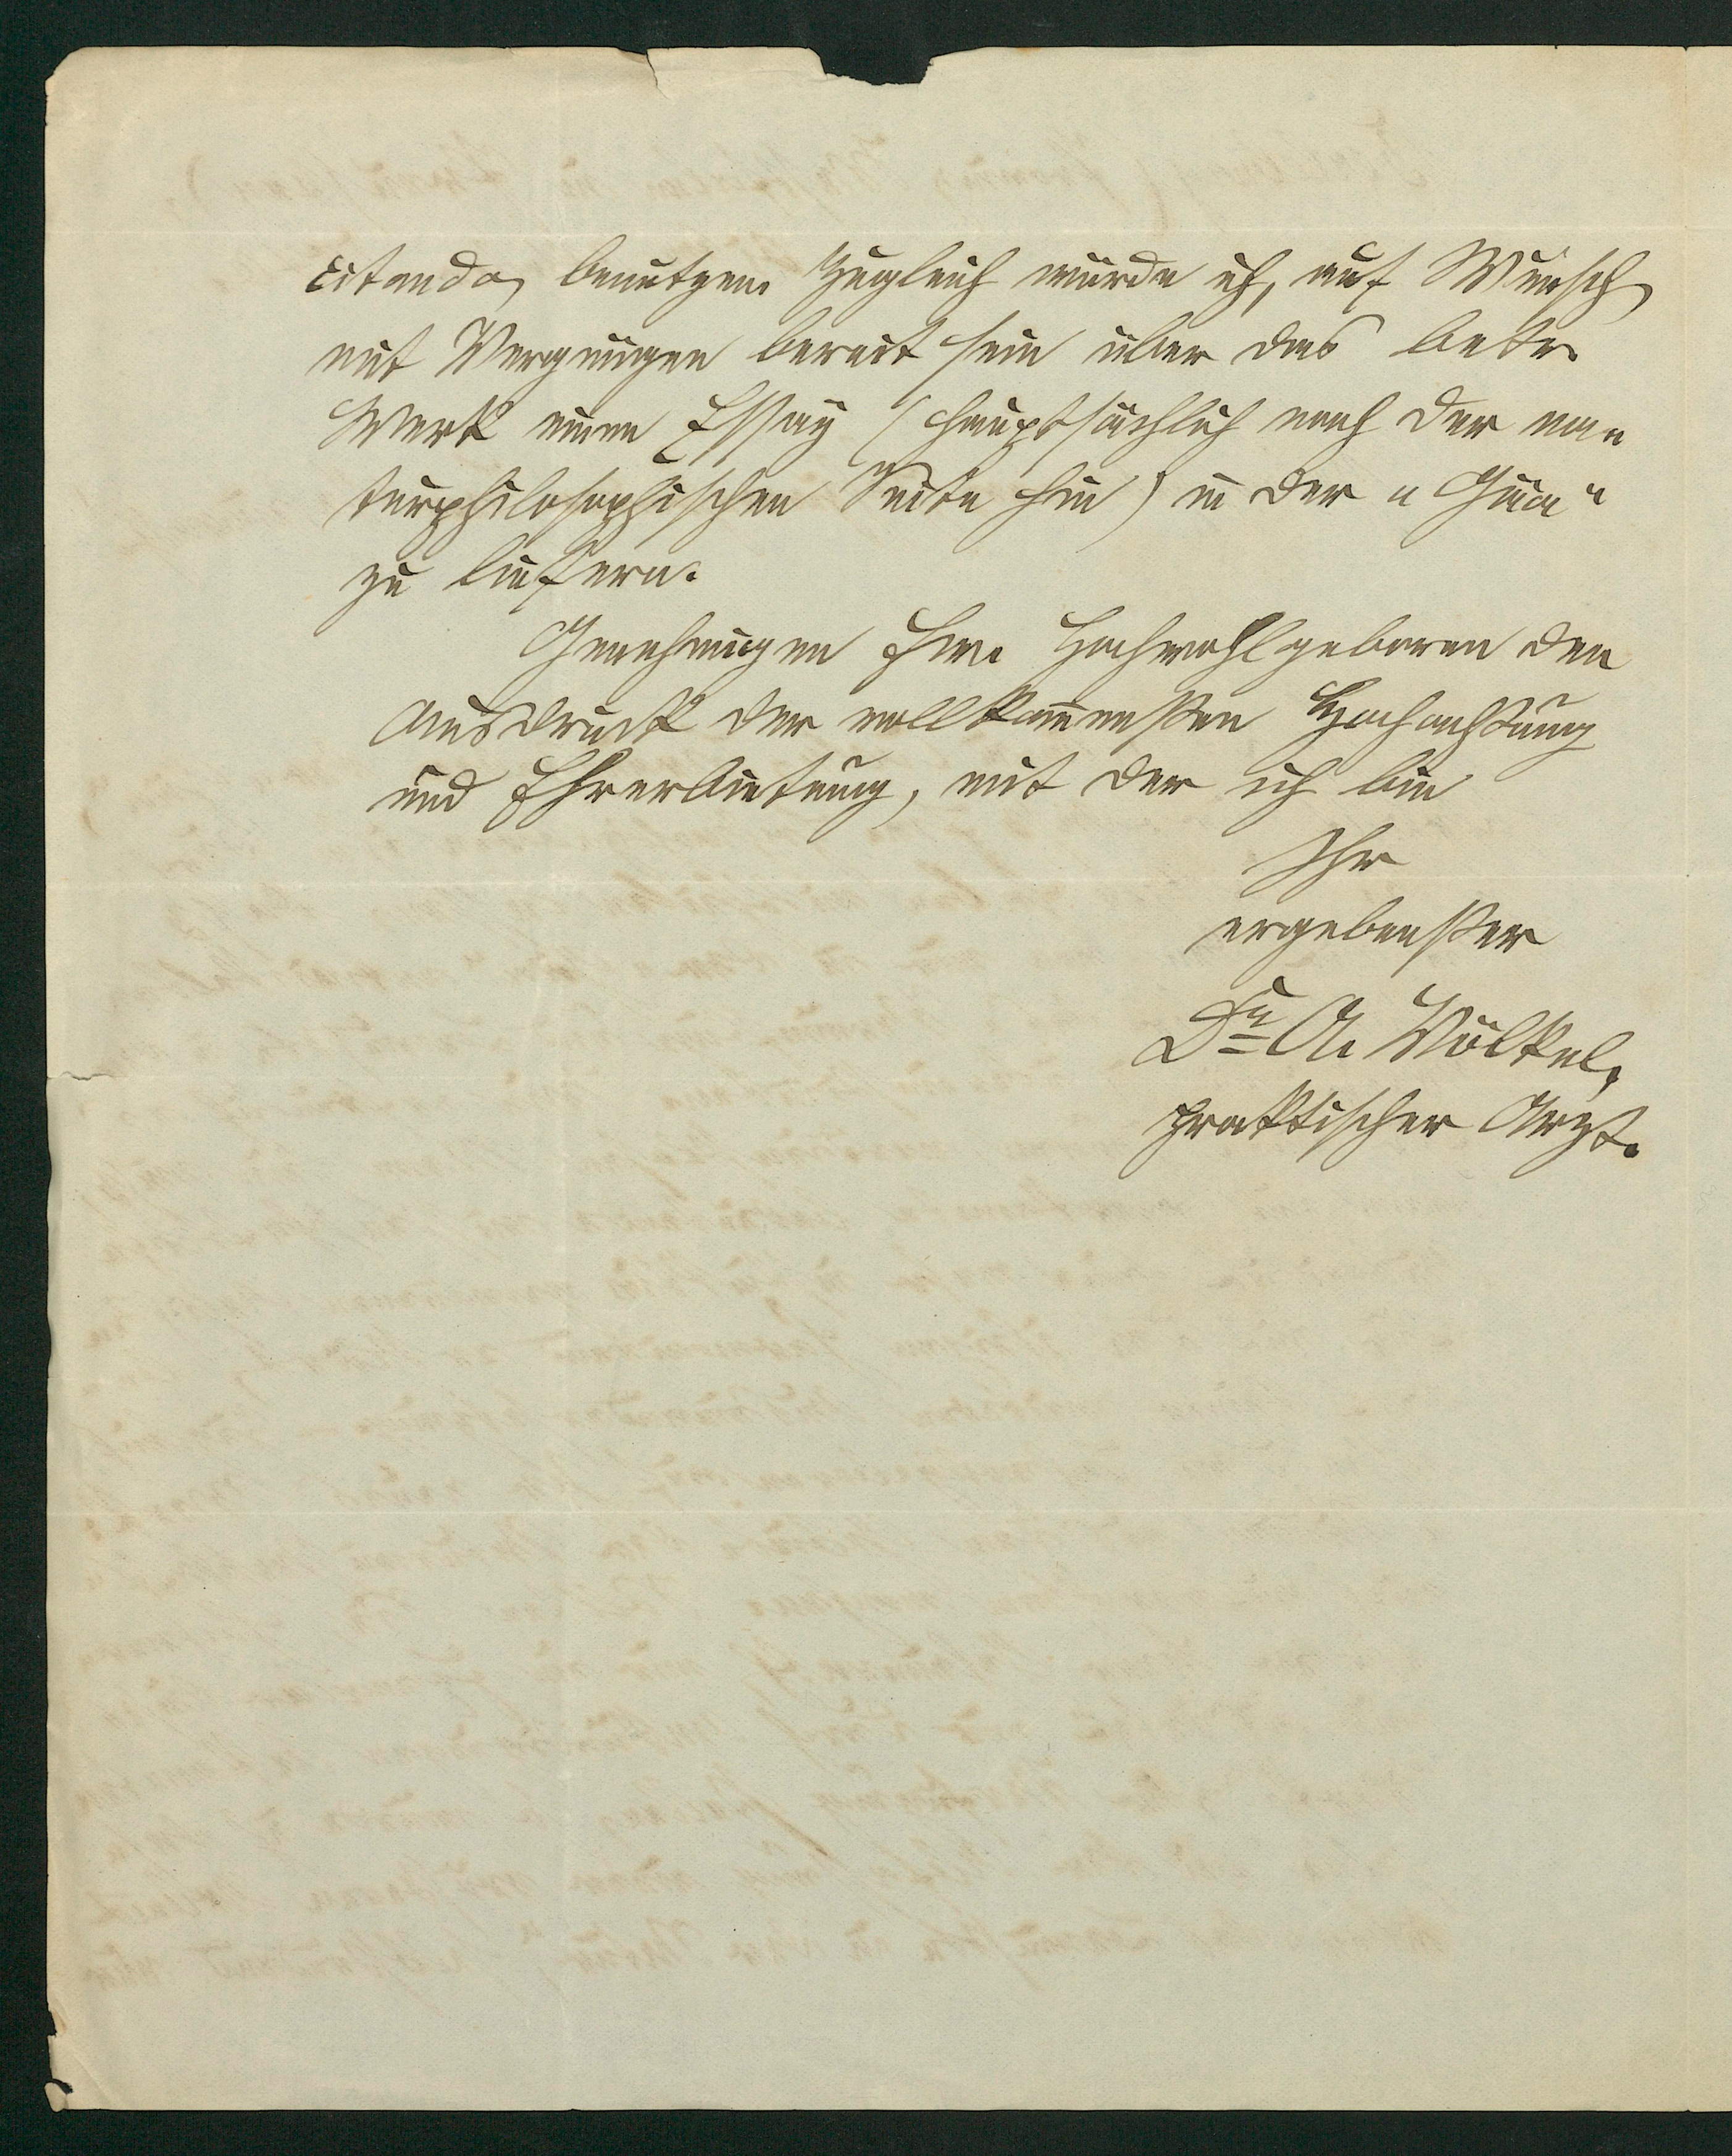 citando, benutzen. Zugleich würde ich, auf Wunsch,
mit Vergnügen bereit sein über das betr.
Werk einen Essay (hauptsächlich nach der na-
turphilosophischen Seite hin) in der „Gäa“
zu liefern.
Genehmigen Ew. Hochwohlgeboren den
Ausdruck der vollkommensten Hochachtung
und Ehrerbietung, mit der ich bin
Ihr
ergebenster
Dr. A. Völkel,
praktischer Arzt.